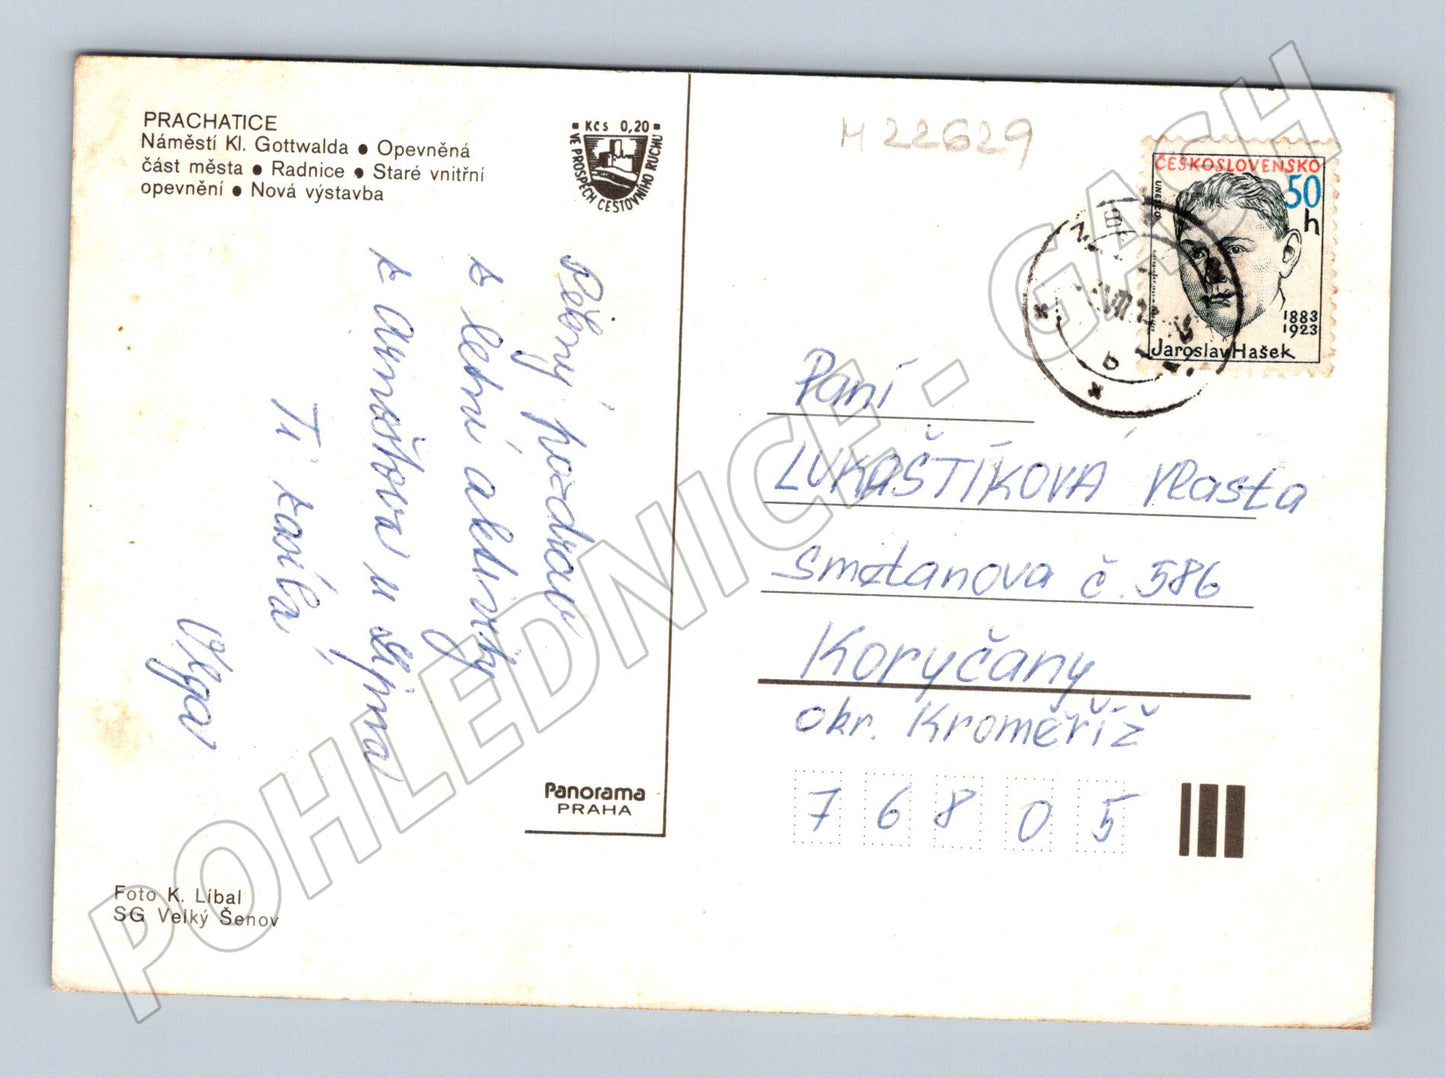 PRACHATICE
Náměstí Kl. Gottwalda ● Opevněná
část města ● Radnice ● Staré vnitřní
opevnění ● Nová výstavba
Kčs 0,20
VE PROSPĚCH CESTOVNÍHO RUCHU
Pěkný pozdrav
z letní aktivity
z Arnoštova u
Ti zasílá
Olga
Panorama
PRAHA
Foto K. Líbal
SG Velký Šenov
M 22629
ČESKOSLOVENSKO
50
h
UNESCO
1883
1923
Jaroslav Hašek
Paní
LUKAŠTÍKOVÁ Vlasta
Smetanova č. 586
Koryčany
okr. Kroměříž
7 6 8 0 5
POHLEDNICE - GACH